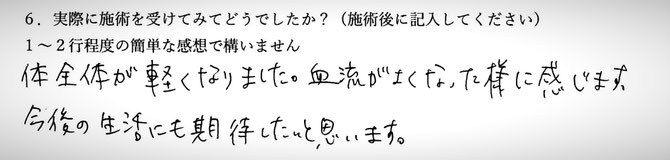 6．実際に施術を受けてみてどうでしたか？（施術後に記入してください）
1～2行程度の簡単な感想で構いません
体全体が軽くなりました。血流がよくなった様に感じます。
今後の生活にも期待したいと思います。